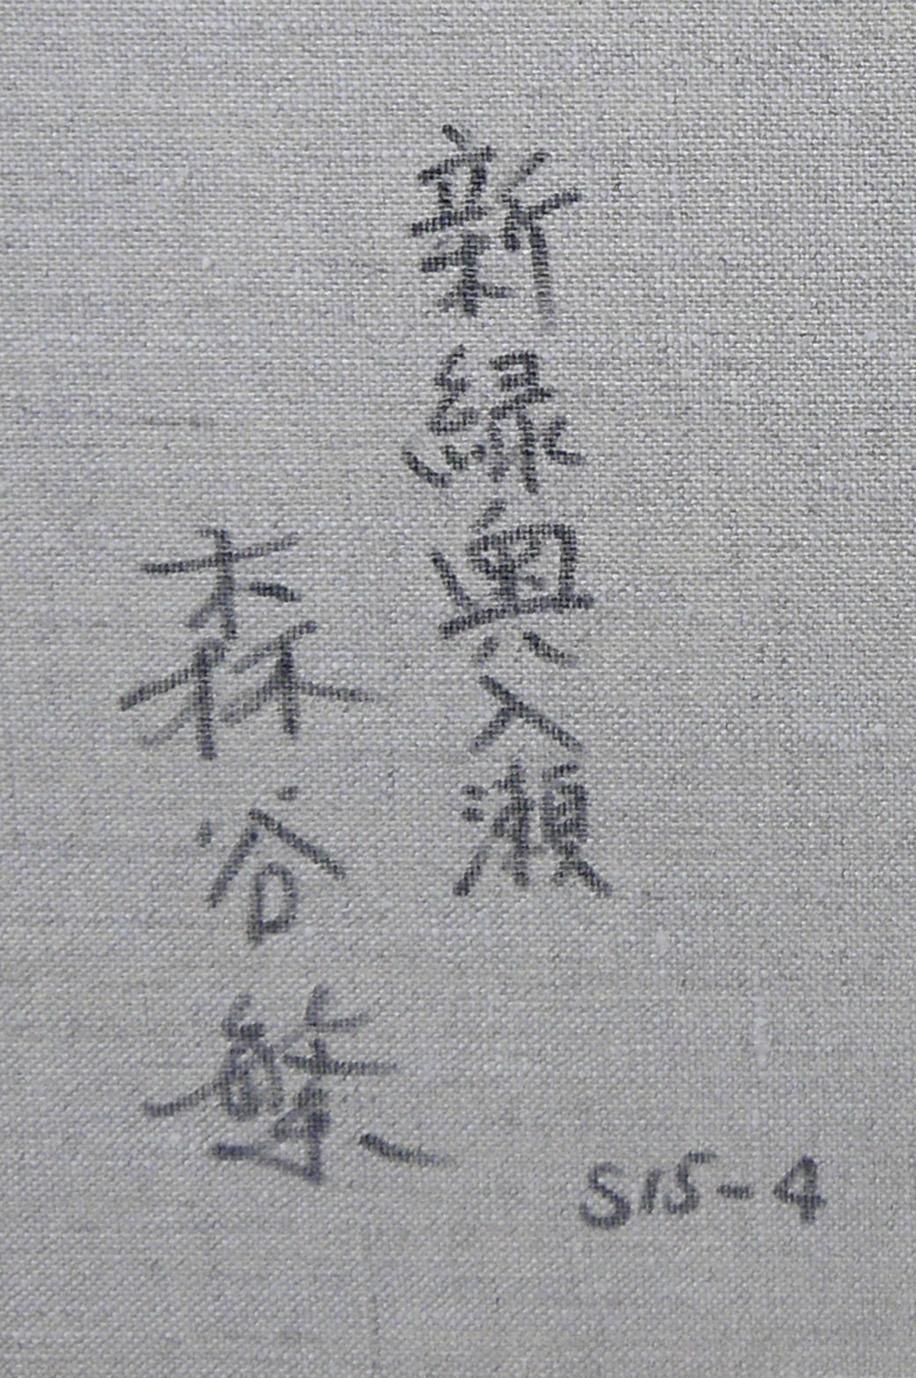 新緑奥入瀬
森谷
S15-4